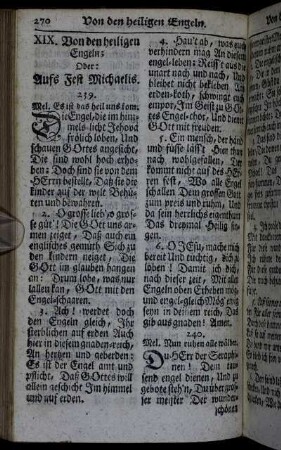 270 Von den heiligen Engeln.
XIX. Von den heiligen
Engeln;
Oder:
Aufs Fest Michaelis.
239.
Mel. Es ist das heil uns kom.
Die Engel, die im him-
mels-licht Jehova
frölich loben, Und
schauen GOttes angesicht,
Die sind wohl hoch erho-
ben; Doch sind sie von dem
HErrn bestellt, Daß sie die
kinder auf der welt Behü-
ten und bewahren.
2. O grosse lieb, o gros-
se güt'! Die GOtt uns ar-
men zeiget, Daß auch ein
englisches gemüth Sich zu
den kindern neiget, Die
GOtt im glauben hangen
an: Drum lobe, was nur
lallen kan, GOtt mit der
Engel-schaaren.
3. Ach! werdet doch
den Engeln gleich, Ihr
sterblichen auf erden Auch
hier in diesem gnaden-reich,
An hertzen und geberden:
Es ist der Engel amt und
pflicht, Daß GOttes will
allein geschicht Im himmel
und auf erden.
4. Hau't ab, was euch
verhindern mag An diesem
engel-leben: Reiss't aus die
unart nach und nach, Und
bleibet nicht bekleben Am
erden-koth, schwingt euch
empor, Im Geist zu GOt-
tes Engel-chor, Und dient
GOtt mit freuden.
5. Ein mensch, der händ
und füsse läss't Ihm thun
nach wohlgefallen, Der
kommt nicht auf des HEr-
ren fest, Wo alle Engel
schallen Dem grossen GOtt
zum preis und ruhm, Und
da sein herrlichs eigenthum
Das dreymal Heilig sin-
gen.
6. O JEsu, mache mich
bereit Und tüchtig, sich zu
üben! Damit ich dich
nach dieser zeit, Mit alln
Engeln oben Erheben mög'
und engel-gleich Mög ewig
seyn in deinem reich, Das
gib aus gnaden! Amen.
240.
Mel. Nun ruhen alle wälder.
DU HErr der Seraphi-
nen! Dem tau-
send engel dienen, Und zu
gebote steh'n, Du überzeu-
jer meister Der wunder-
schönen